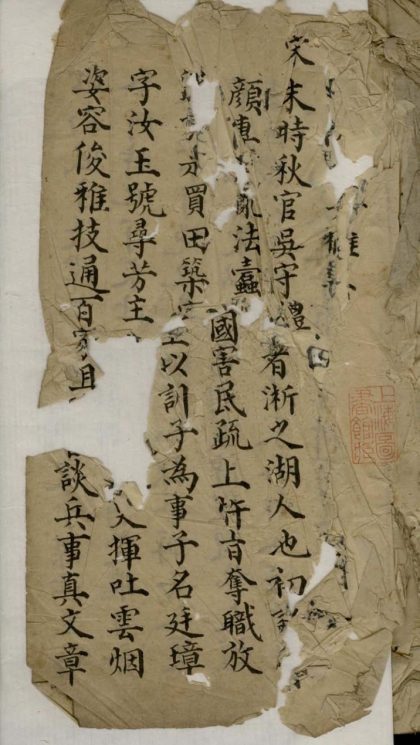 宋末時秋官吳守禮者浙之湖人也初
顏亂法蠹國害民疏上忤旨奪職放
買田築室以訓子為事子名廷璋
字汝玉號尋芳主揮吐雲烟
姿容俊雅技通百家且談兵事真文章
上海圖
書館藏